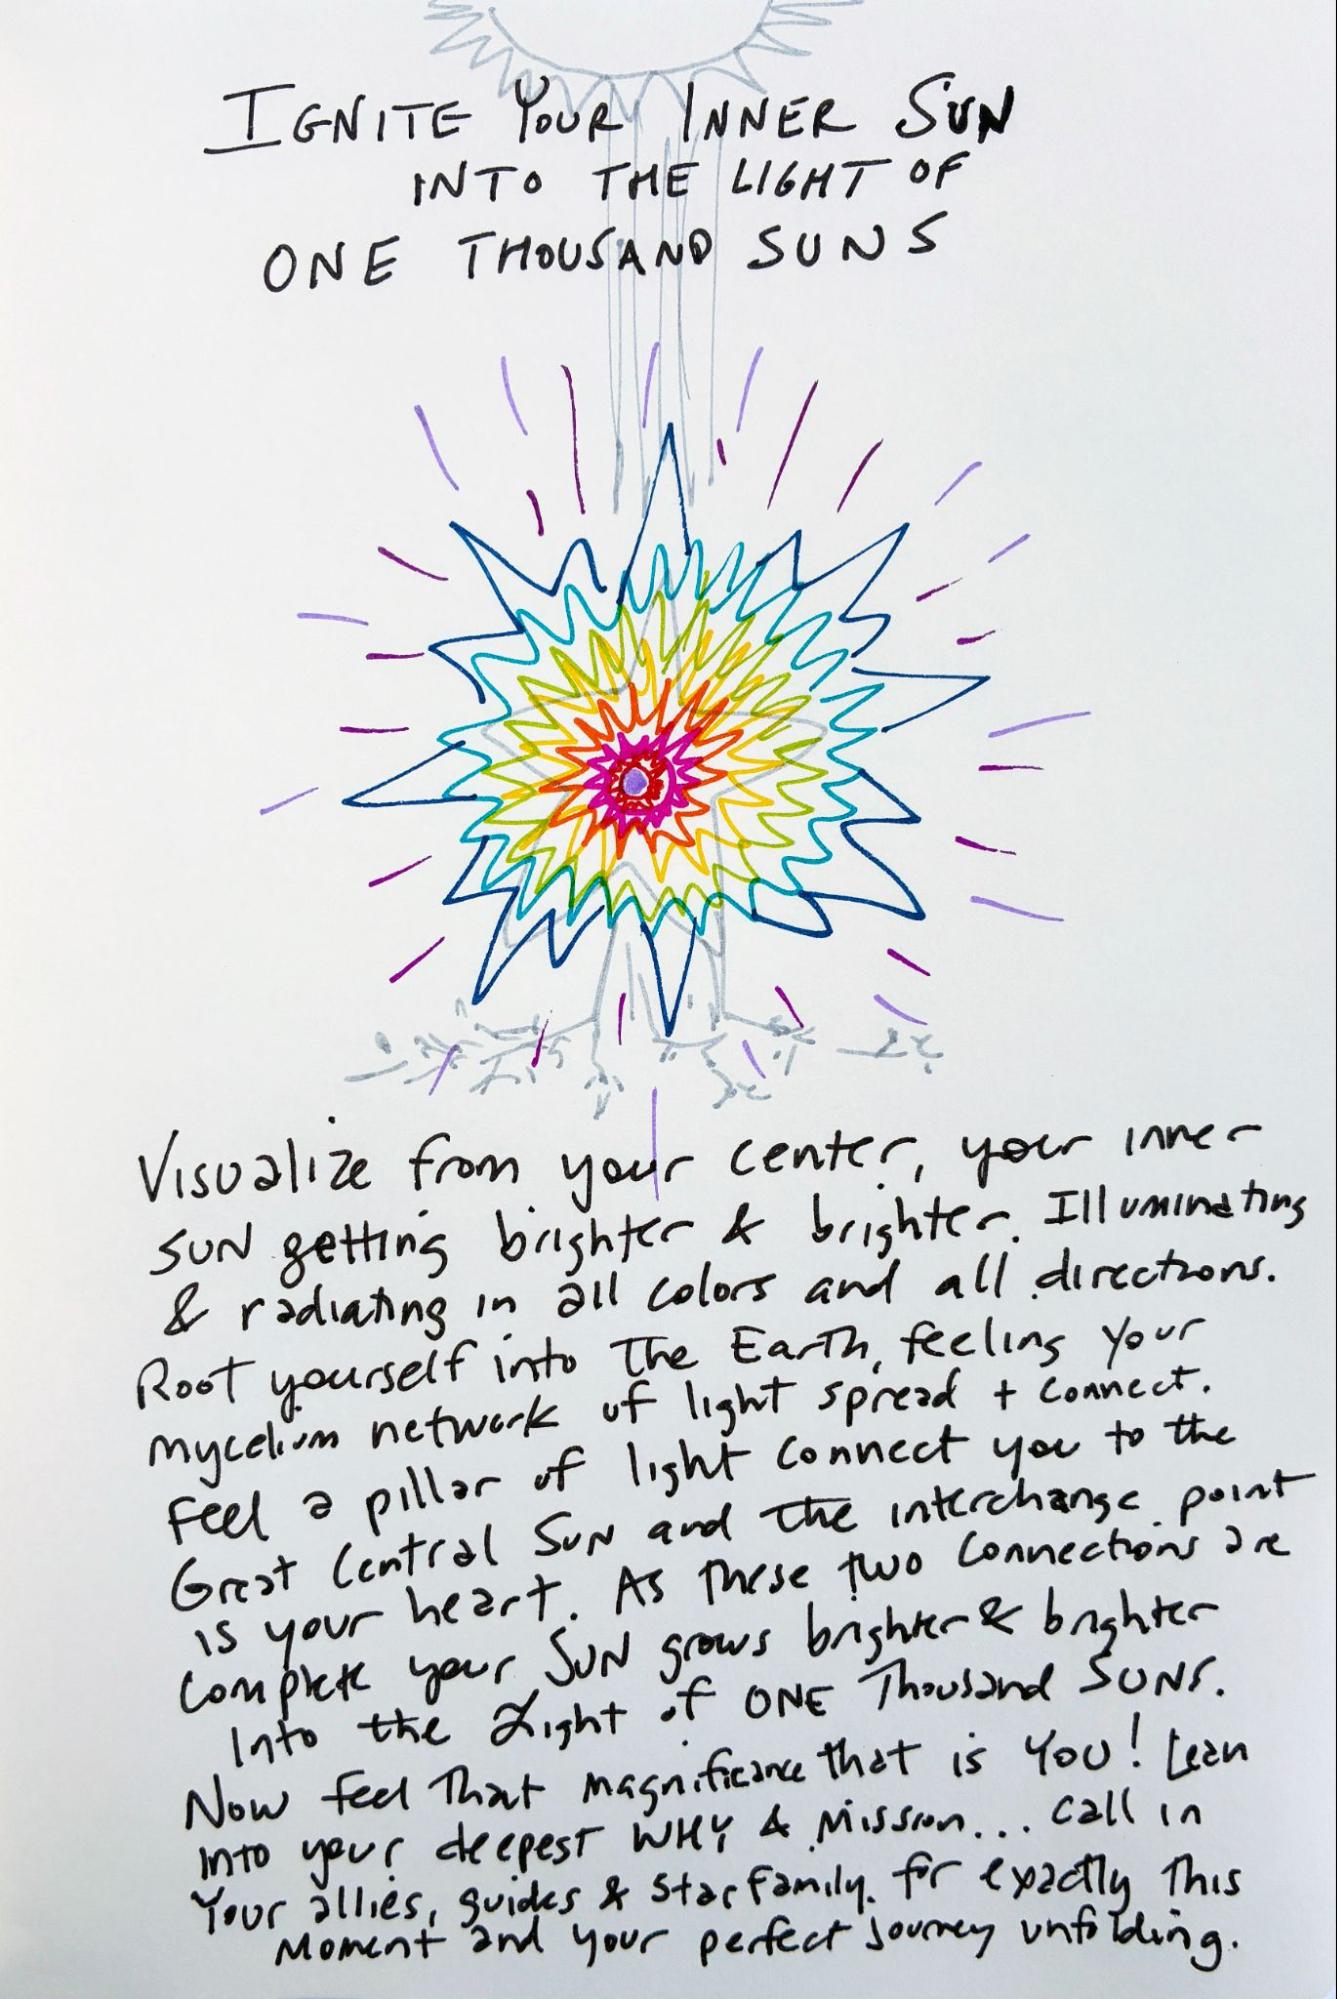 IGNITE YOUR INNER SUN
INTO THE LIGHT OF
ONE THOUSAND SUNS
Visualize from your center, your inner
SUN getting brighter & brighter. Illuminating
& radiating in all colors and all directions.
Root yourself into The Earth, feeling your
mycelium network of light spread + connect.
Feel a pillar of light connect you to the
Great Central Sun and the interchange point
is your heart. As These two connections are
complete your SUN grows brighter & brighter
Into the Light of ONE Thousand SUNS.
Now feel That magnificance that is YOU! Lean
into your deepest WHY & Mission... call in
Your allies, guides & star family. for exactly This
Moment and your perfect journey unfolding.